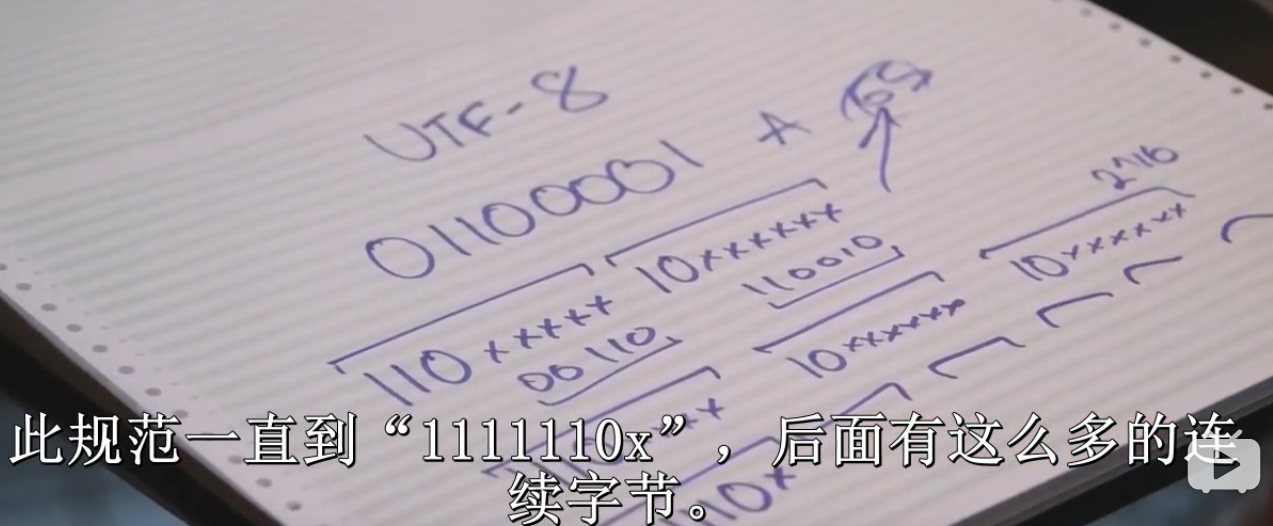 UTF-8
01100001 A 65
110xxxxx 10xxxxxx
00110 110010
10xxxxxx 10xxxxxx 2^16
110x
此规范一直到“1111110x”，后面有这么多的连
续字节。